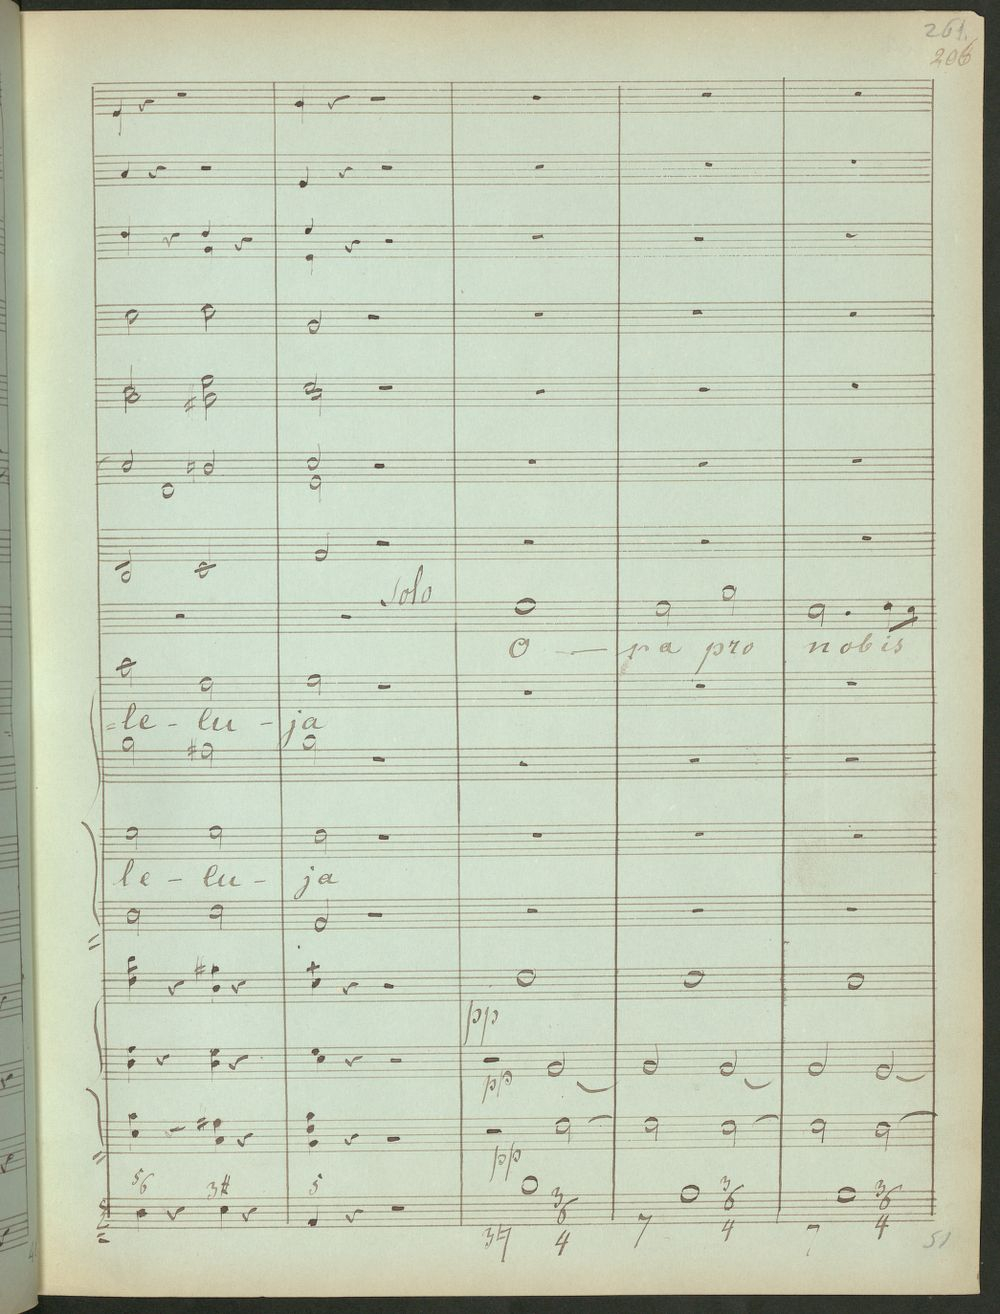 261.
206
Solo
O — ra pro nobis
=le - lu - ja
le - lu - ja
pp
pp
pp
56 3# 5
3 6 3 6 3 6
3♮ 4 7 4 7 4
51